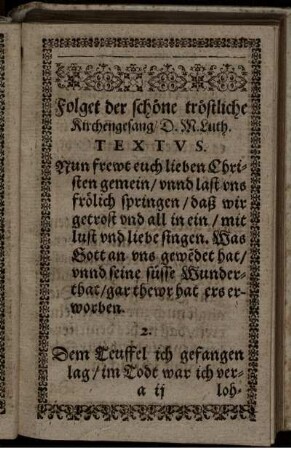 Folget der schöne tröstliche
Kirchengesang/ D. M. Luth.
TEXTVS.
Nun frewt euch lieben Chri-
sten gemein/ vnnd last vns
frölich springen/ daß wir
getrost vnd all in ein/ mit
lust vnd liebe singen. Was
Gott an vns gewẽdet hat/
vnnd seine süsse Wunder-
that/ gar thewr hat ers er-
worben.
2.
Dem Teuffel ich gefangen
lag/ im Todt war ich ver-
a ij loh-